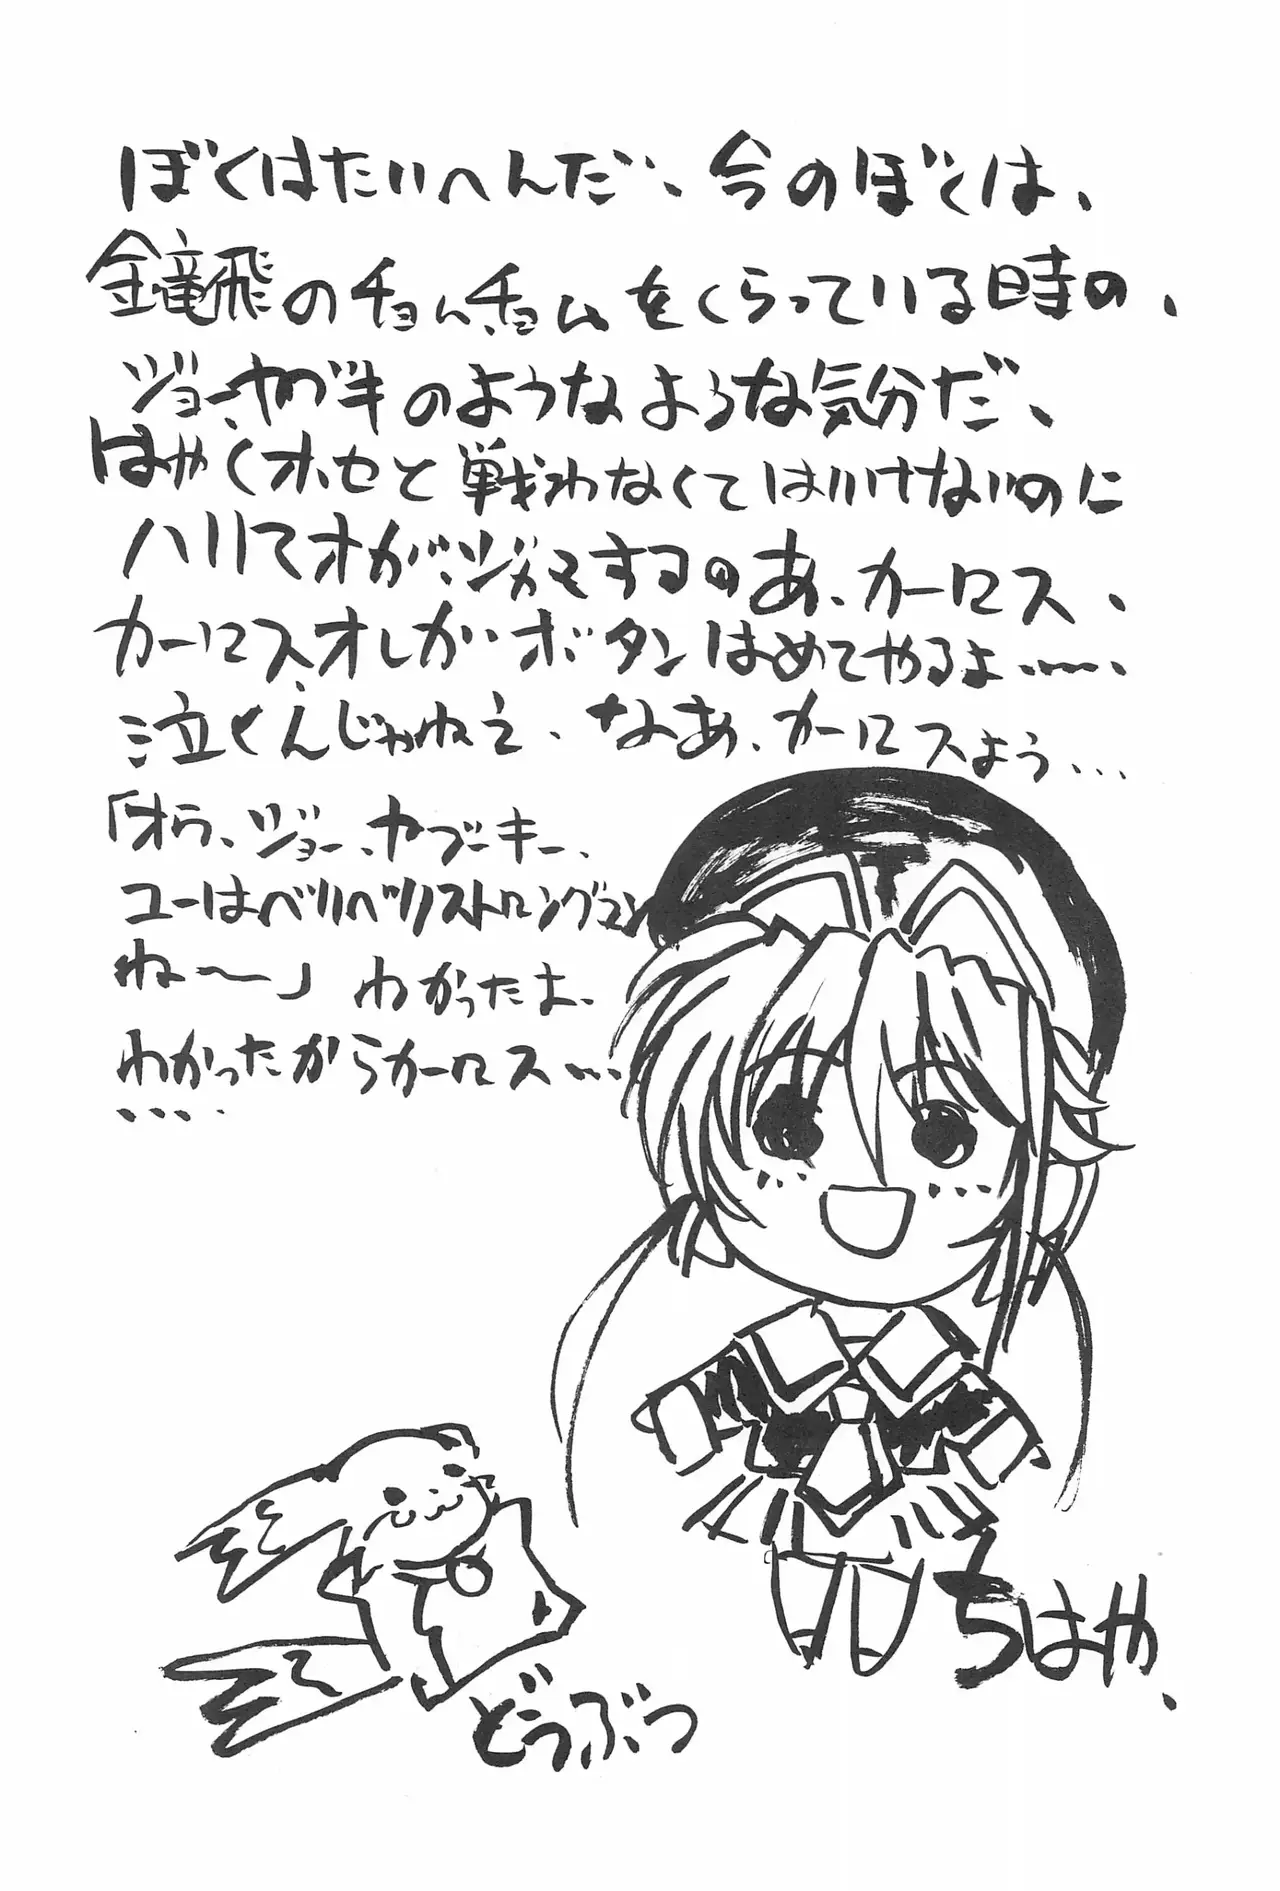 ぼくはたいへんだ、今のぼくは、
金竜飛のチョムチョムをくらっている時の、
ジョー、ヤブキのようなような気分だ、
はやくホセと戦わなくてはいけないのに
ハリマオがジャマするのあ、カーロス、
カーロス、オレがボタンはめてやるよ……、
泣くんじゃねえ、なあ、カーロスよう…
「オラ、ジョー、ヤブーキー、
ユーはベリベリストロングマン
ね〜」わかったよ、
わかったからカーロス…
……
ちはや、
どうぶつ